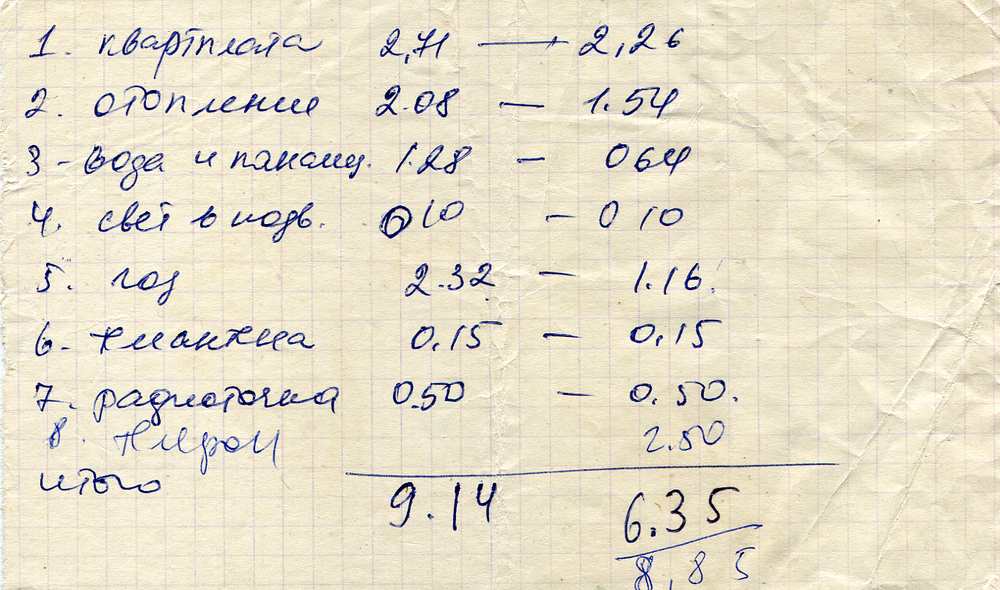 1. квартплата 2,71 — 2,26
2. отопление 2.08 — 1.54
3 - вода и канализ. 1.28 — 064
4. свет в подв. 010 — 010
5. газ 2.32 — 1.16.
6. 0.15 — 0.15
7. радиоточка 0.50 — 0.50.
8. 2.50
итого 9.14 6.35
8,85